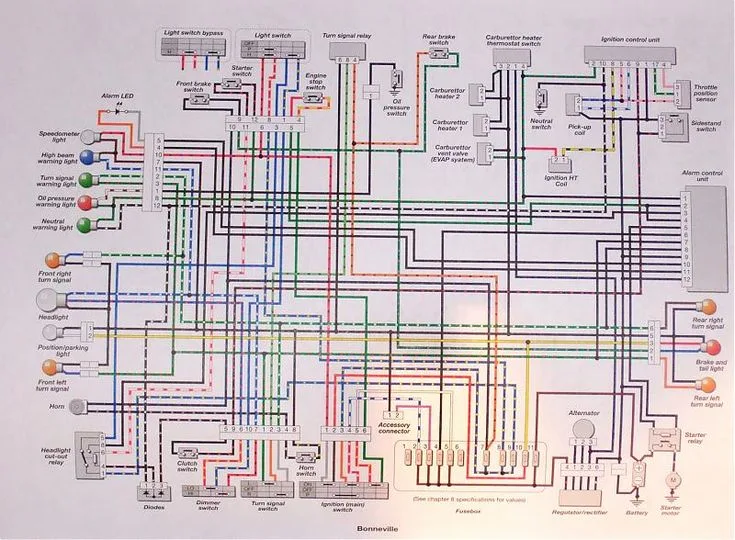 Light switch bypass
Light switch
Turn signal relay
Rear brake
switch
Carburettor heater
thermostat switch
Ignition control unit
Starter
switch
Engine
stop
switch
Front brake
switch
Oil
pressure
switch
Carburettor
heater 2
Carburettor
heater 1
Carburettor
vent valve
(EVAP system)
Neutral
switch
Pick-up
coil
Throttle
position
sensor
Sidestand
switch
Ignition HT
Coil
Alarm control
unit
Alarm LED
Speedometer
light
High beam
warning light
Turn signal
warning light
Oil pressure
warning light
Neutral
warning light
Front right
turn signal
Headlight
Position/parking
light
Front left
turn signal
Horn
Headlight
cut-out
relay
Diodes
Clutch
switch
Dimmer
switch
Turn signal
switch
Horn
switch
Ignition (main)
switch
Accessory
connector
(See chapter 8 specifications for values)
Fusebox
Alternator
Regulator/rectifier
Battery
Starter
relay
Starter
motor
Rear right
turn signal
Brake and
tail light
Rear left
turn signal
Bonneville